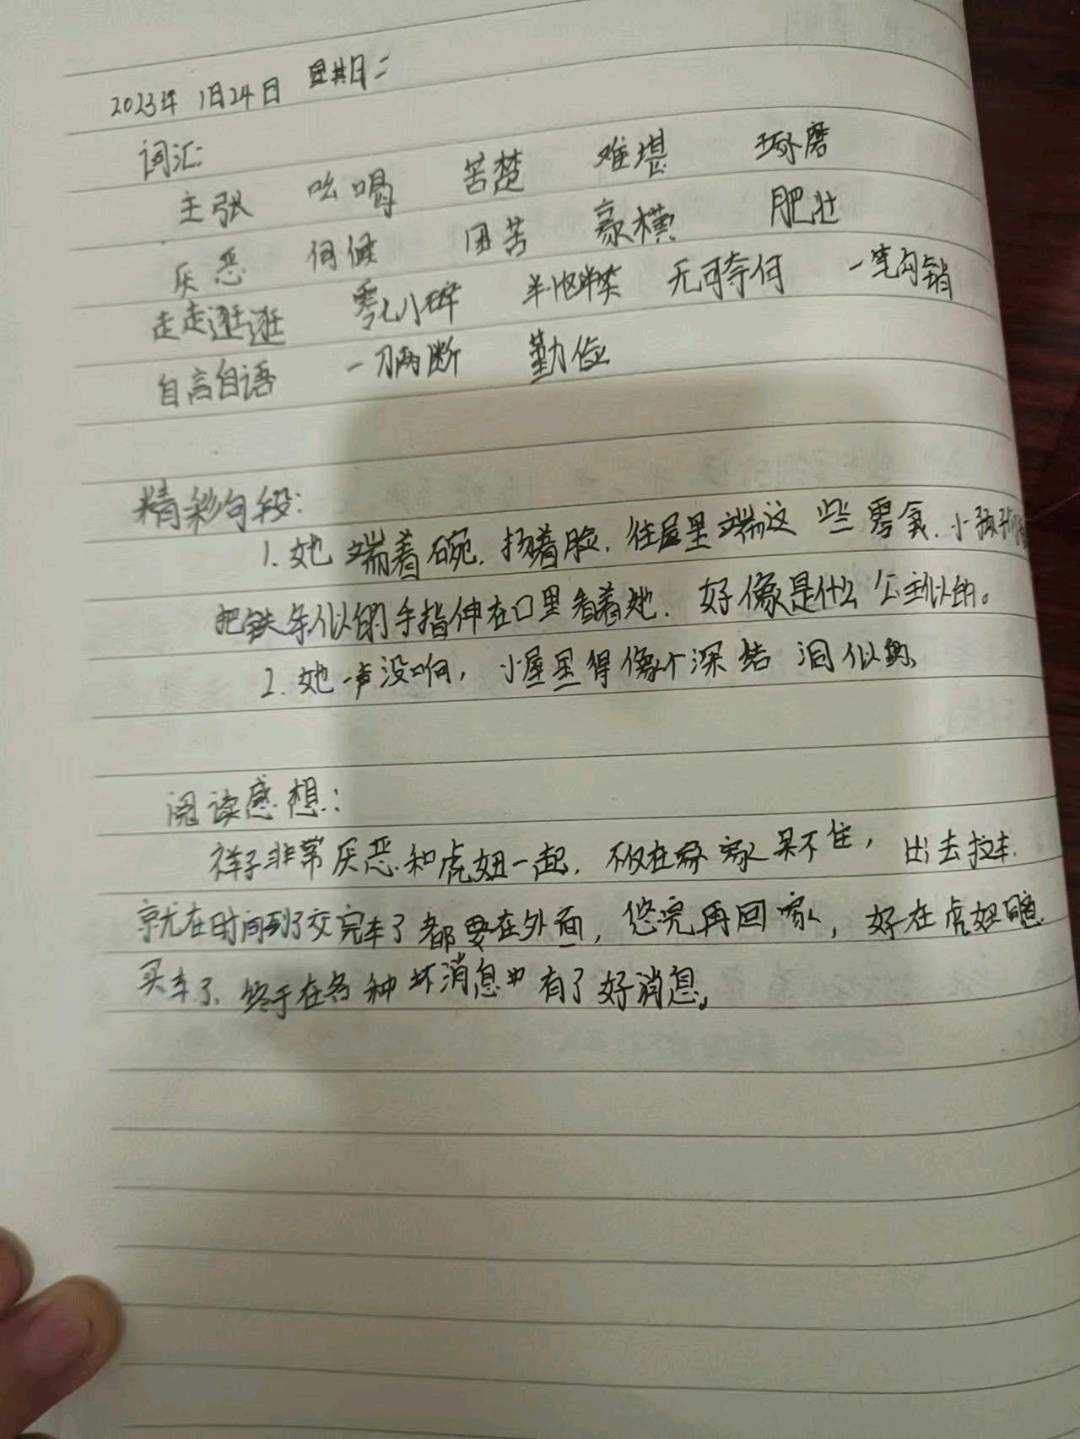 2023年 1月24日 星期二
词汇:
主张 吆喝 苦楚 难堪 琢磨
厌恶 伺候 困苦 豪横 肥壮
走走逛逛 零七八碎 半恼半笑 无可奈何 一笔勾销
自言自语 一刀两断 勤俭
精彩句段:
1. 她端着碗,扬着脸,往屋里端这些零食,小孩子们
把铁条似的手指伸在口里看着她,好像是什么公主似的。
2. 她一声没响,小屋里得像个深
阅读感想:
祥子非常厌恶和虎妞一起,不仅在家呆不住,出去拉车
就在时间到了交完车了都要在外面,悠完再回家,好在虎妞
买车了,终于在各种坏消息中有了好消息。